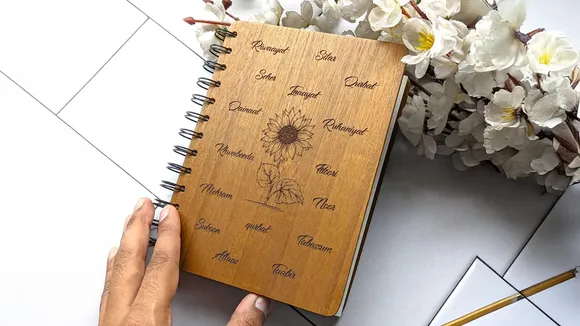 Riwaayat
Sitar
Seher
Qurbat
Inaayat
Qainaat
Ruhaniyat
Khwabeeda
Fitoori
Mehram
Noor
Sukoon
qurbat
Tabassum
Altaaf
Taabir